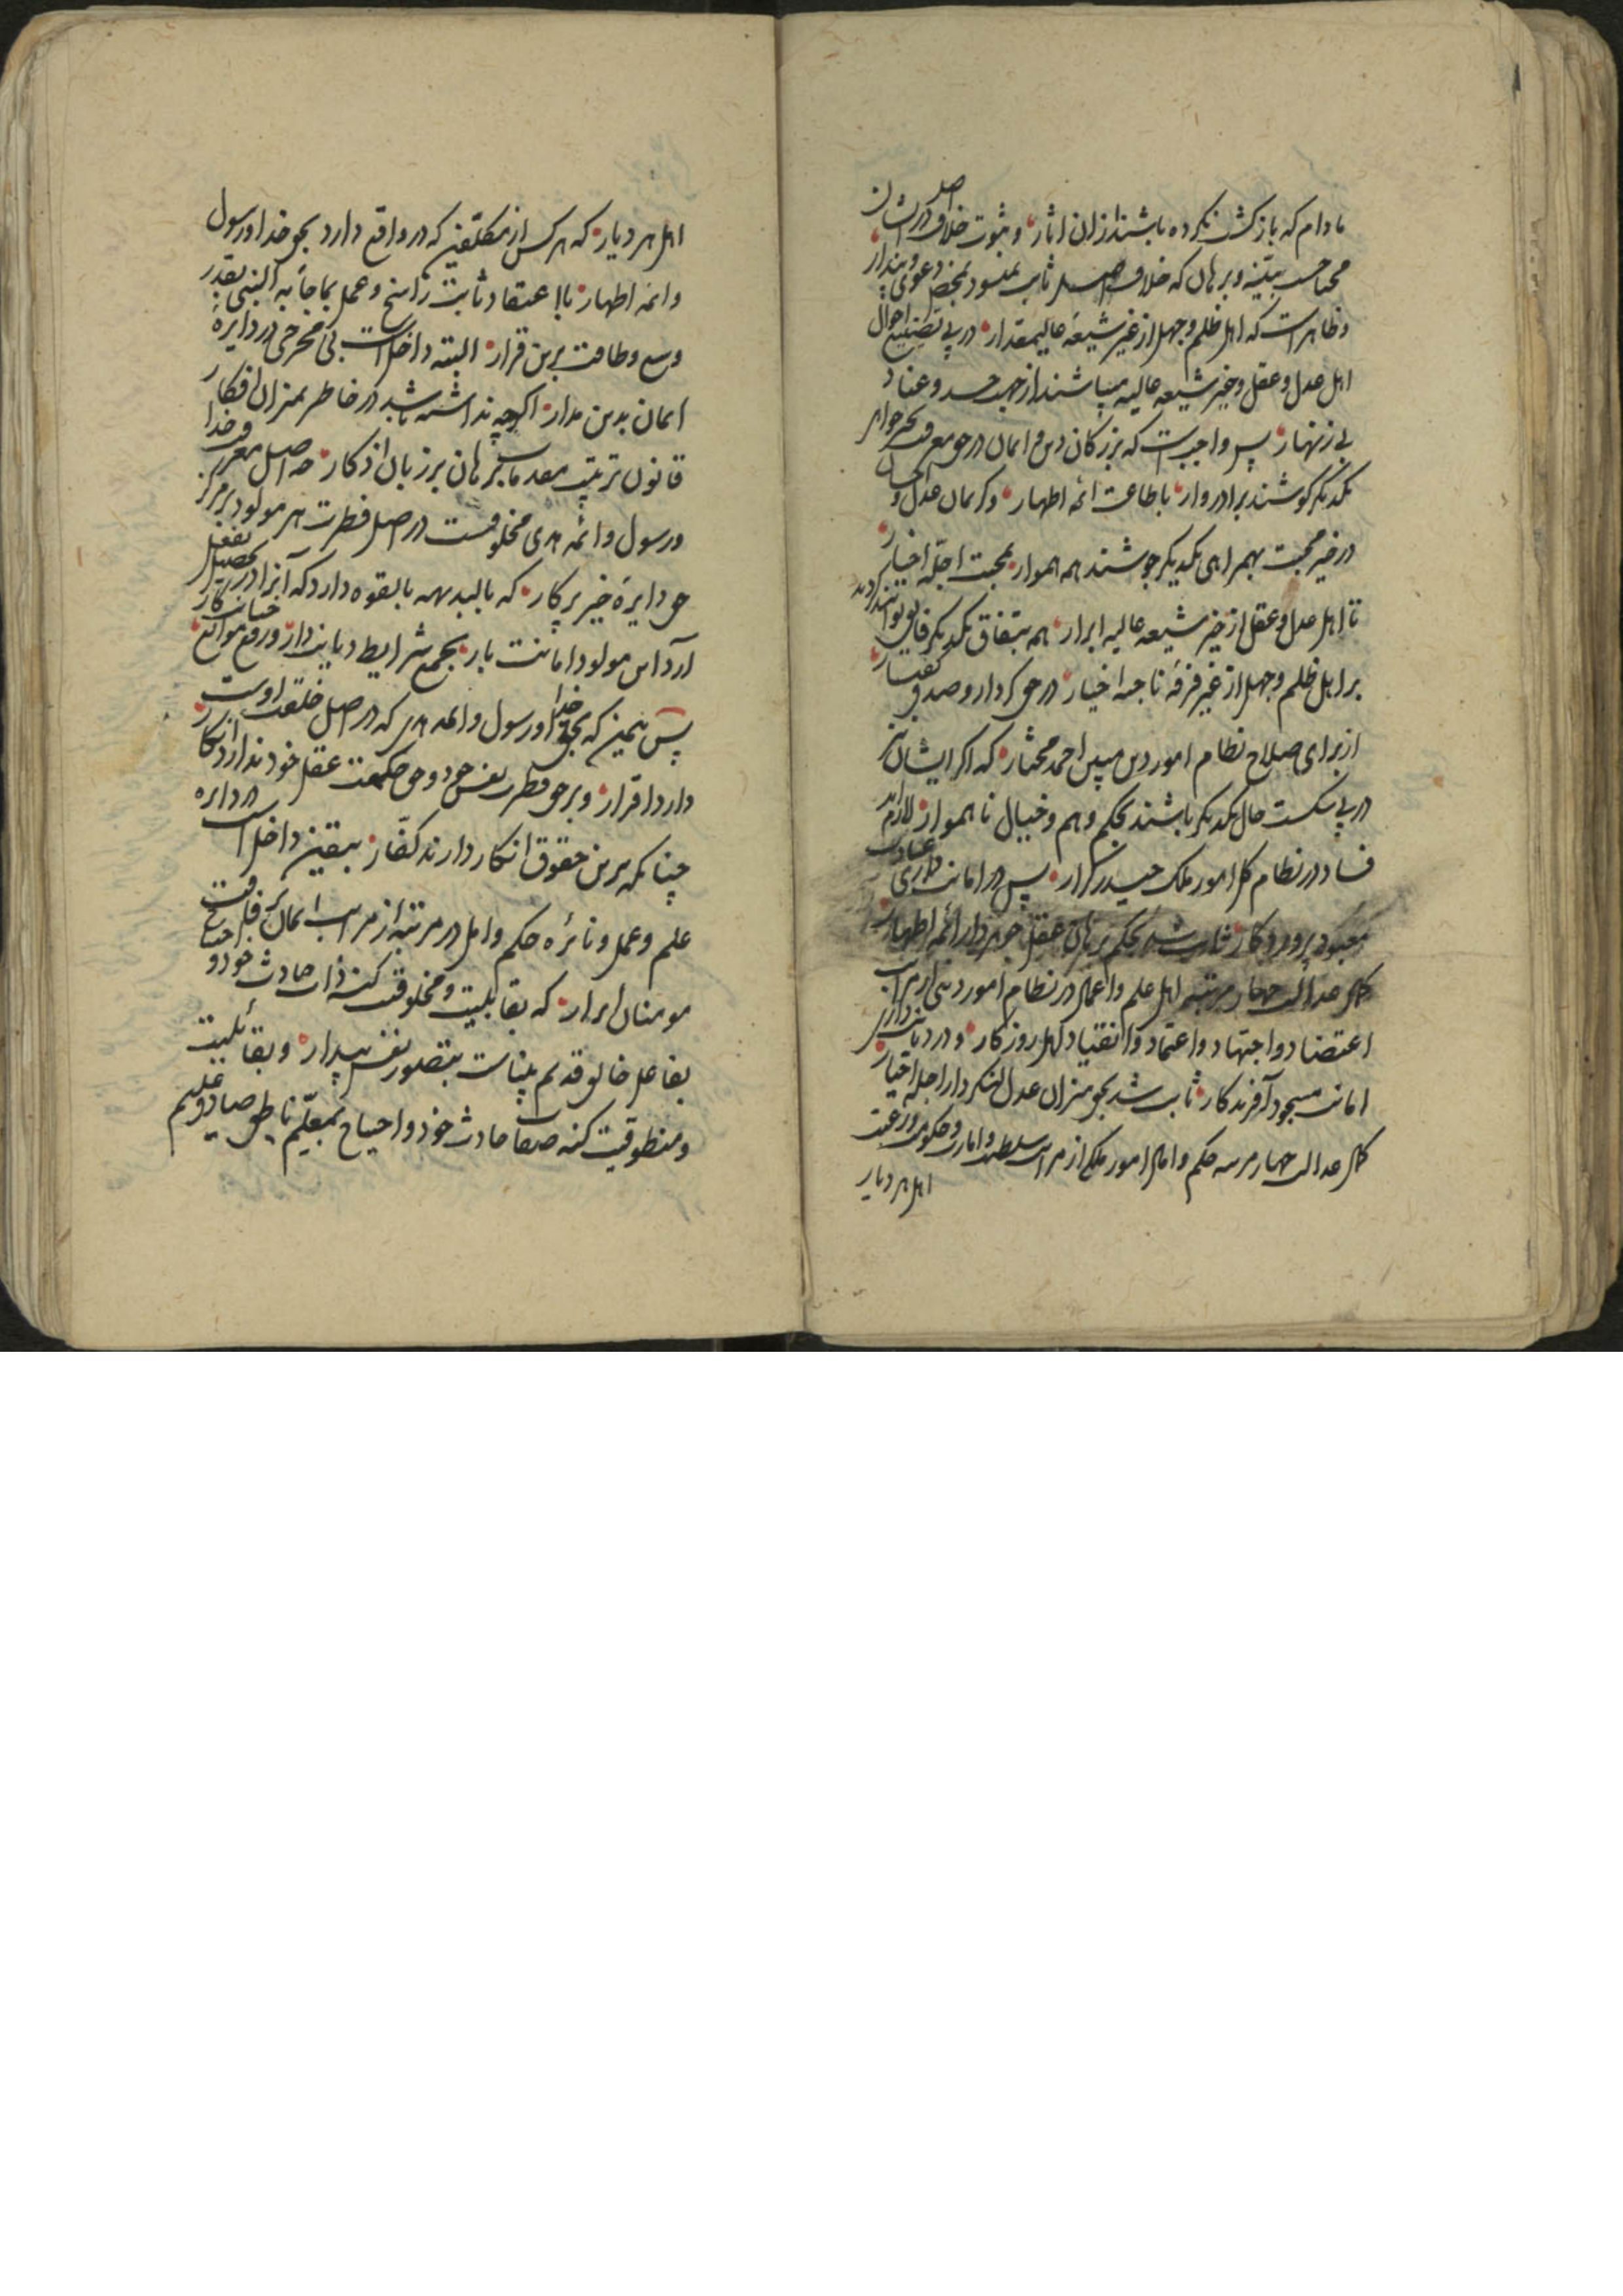 مادام که بازکشت نکرده باشند ازان اثار و ثبوت خلاف اصل در ایشان
محتاجست ببیّنه وبرهان که خلاف اصل ثابت نمیشود بمحض دعوی وپندار
وظاهرست که اهل ظلم وجهل از غیر شیعه عالیمقدار در پی تضییع احوال
اهل عدل وعقل وخیر شیعه عالیه میباشند از جهت حسد وعناد
بی زنهار پس واجبست که بزرکان دین و ایمان در جمع
یکدیکر کوشند برادروار باطاعت ائمه اطهار وکریمان عدل و
در خیر محبت بهمراهی یکدیکر جوشند همه هموار بمحبت اجلّه اخیار
تا اهل عدل وعقل از خیر شیعه عالیه ابرار همه بتّفاق یکدیکر فایق توانند کردید
بر اهل ظلم وجهل از غیر فرقه ناجیه اخیار در حق کردار وصدق کفتار
از برای صلاح نظام امور دین مبین احمد مختار که اکر ایشان نیز
در پی شکست حال یکدیکر باشند بحکم وهم وخیال ناهموار لازم آید
فساد در نظام کل امور ملک حیدر کرار پس در امانت داری عبادت
معبود پروردکار ثابت شد بحکم برهان عقل جوهردار ائمه اطهار
کمال عدالت چهار مرتبه اهل علم واعمال در نظام امور دینی از مراتب
اعتضاد واجتهاد واعتماد وانقیاد اهل روزکار و در دیانت داری
امانت مسجود آفریدکار ثابت شد بحق میزان عدل لنکردار اجلّه اخیار
کمال عدالت چهار مرتبه حکم وامال امور ملکی از مراتب سلطنت وامارت وحکومت ورعیت
اهل هر دیار
اهل هر دیار که هر کس از مکلّفین که در واقع دارد بحق خدا ورسول
وائمه اطهار بااعتقاد ثابت راسخ وعمل بماجاء به النبی بقدر
وسع وطاقت برین قرار البته داخلست بی مخرجی در دایره
ایمان بدین مدار اکرچه نداشته باشد در خاطر بمیزان افکار
قانون ترتیب مقدمات برهان بر زبان اذکار چه اصل معرفت خدا
ورسول وائمه هدی مخلوقست در اصل فطرت هر مولود بر مرکز
حق دایره خیر پرکار که بالبدیهه بالقوه دارد که آنرا در تحصیل بفعل
آرد آن مولود امانت بار بجمع شرایط دیانت دار ورفع موانع خیانت کار
پس همین که بحق خدا ورسول وائمه هدی که در اصل خلقت اوست
دارد اقرار وبر حق فطرت نفس خود وحق حکمت عقل خود ندارد انکار
چنانکه برین حقوق انکار دارند کفّار بیقین داخلست در دایره
علم وعمل ونائره حکم وامل در مرتبه از مراتب ایمان
مومنان ابرار که بقابلیت ومخلوقیت کنه ذات حادث خود و احتیاج
بفاعل خالق قدیم بیناست بتصور نفس بیدار وبقابلیت
ومنطوقیت کنه صفات حادث خود واحتیاج بمعلّم ناطق صادق علیم